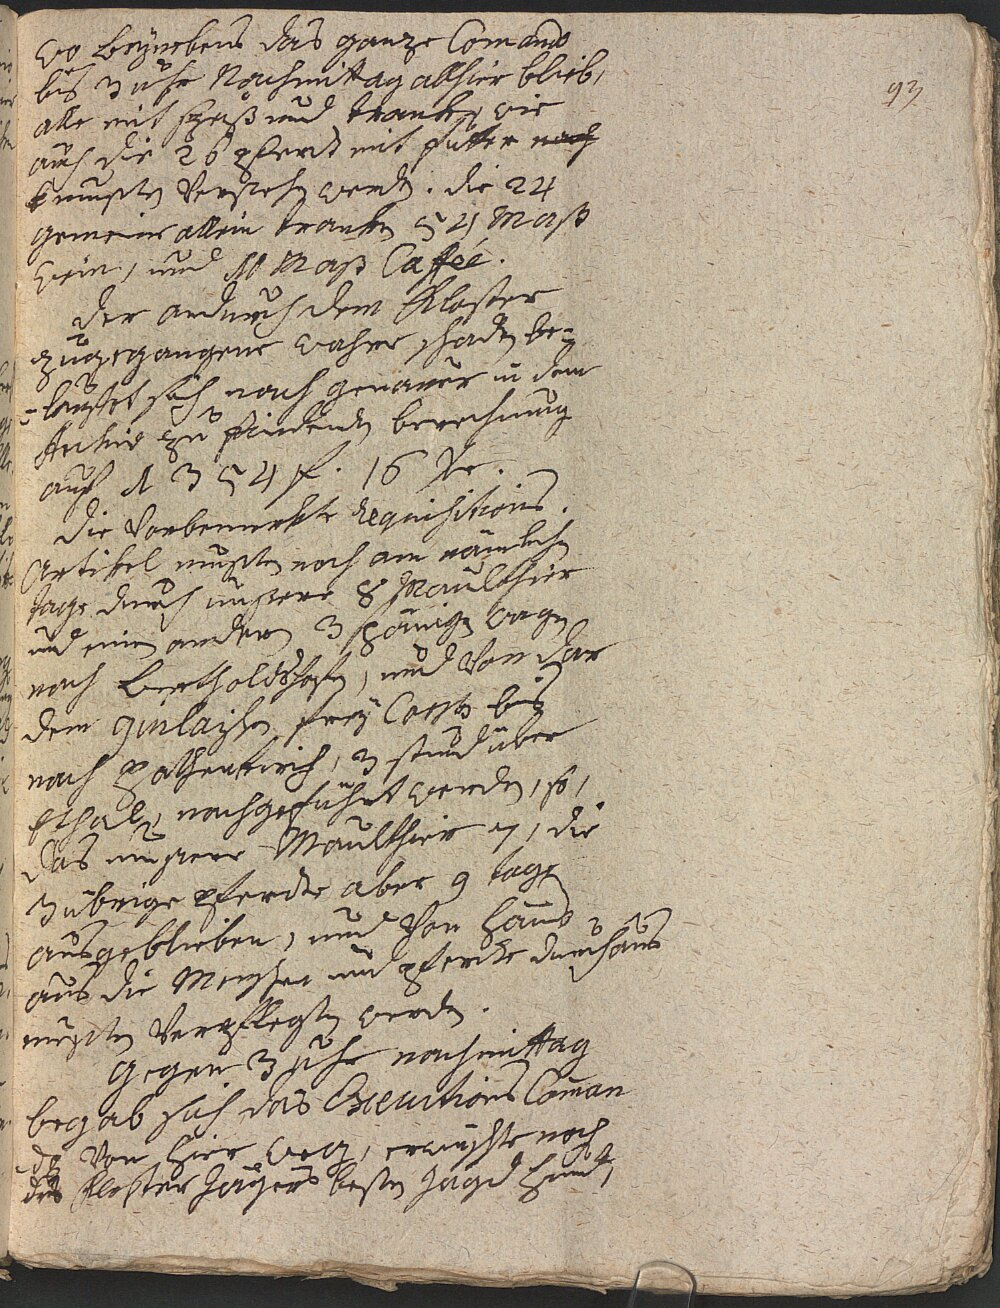 93
wo beÿnebens das ganze Comando
bis 3 uhr Nachmittag allhier blieb,
alle mit speiß und trank, wie
auch die 26 pferd mit futter noch
musten Versehen werden. die 24
gemeine allein tranken 54 Maß
wein, und 11 Maß Caffée.
der andurch dem Kloster
zugegangene wahre schaden be-
-lauffet sich nach genauer in dem
Archiv zu findenden berechnung
auf 1354 f. 16 Xr.
die Vorbemerkte Requisitions.
Artikel musten noch am nämlichen
tage durch unsere 8 Maulthier
und einen anderen 3 spänigen wagen
nach Bertholdshofen, und Von dar
dem Giulaischen freÿ Corps bis
nach, 3 stund über
, nachgeführt werden, so,
das unsere Maulthier 7, die
3 übrige pferdte aber 9 tage
ausgeblieben, und Von Haus
aus die Menschen und pferdte durchaus
musten Verpflegten werden.
Gegen 3 uhr nachmittag
begab sich das Executions Coman
do Von hier weg, erwischte noch
des Kloster Jägers besten Jagd Hund,